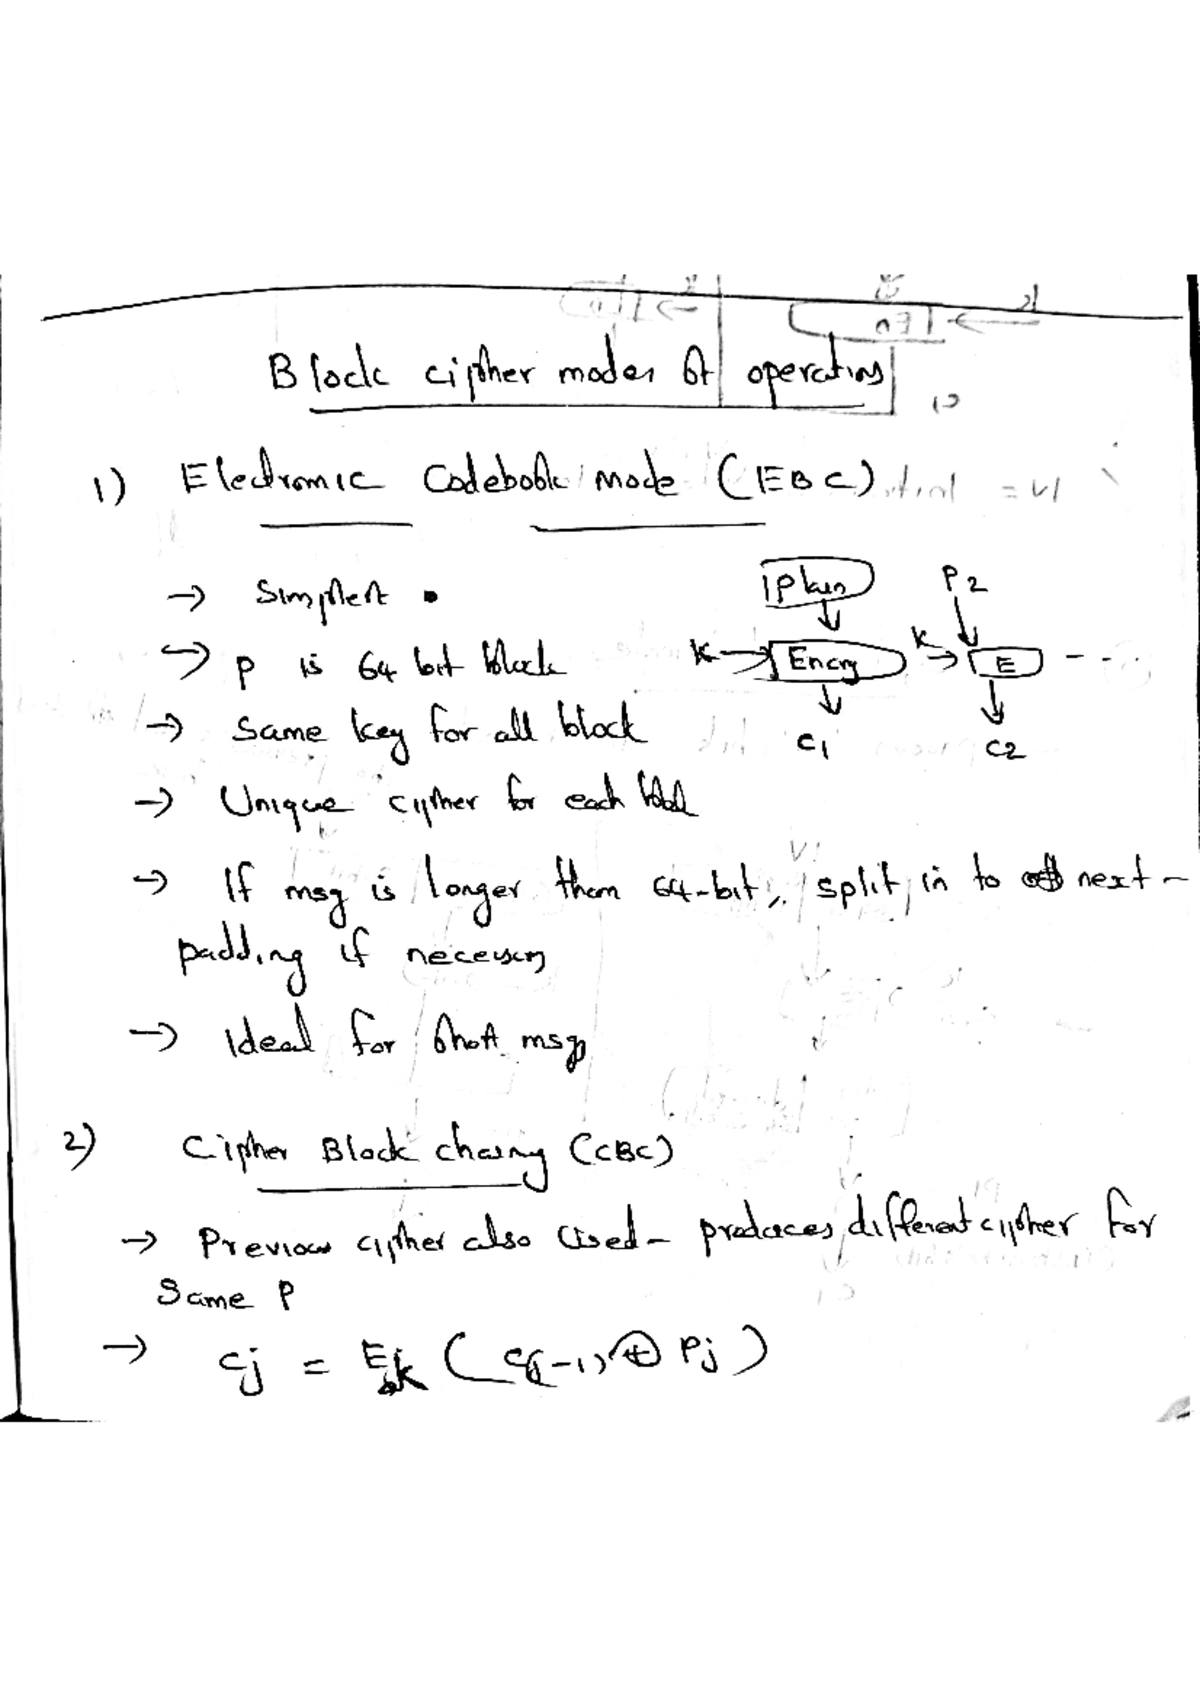 Block cipher modes of operations
1) Electronic Codebook mode (EBC)
→ Simplest •
→ P is 64 bit block
→ Same key for all block
→ Unique cipher for each block
→ If msg is longer than 64-bit, split in to next -
padding if necessary
→ Ideal for short msg
Plain
P2
K → Encry
K → E - - -
C1
C2
2) Cipher Block chaing (CBC)
→ Previous cipher also used - produces different cipher for
Same P
→ Cj = Ek (C(j-1) ⊕ Pj)